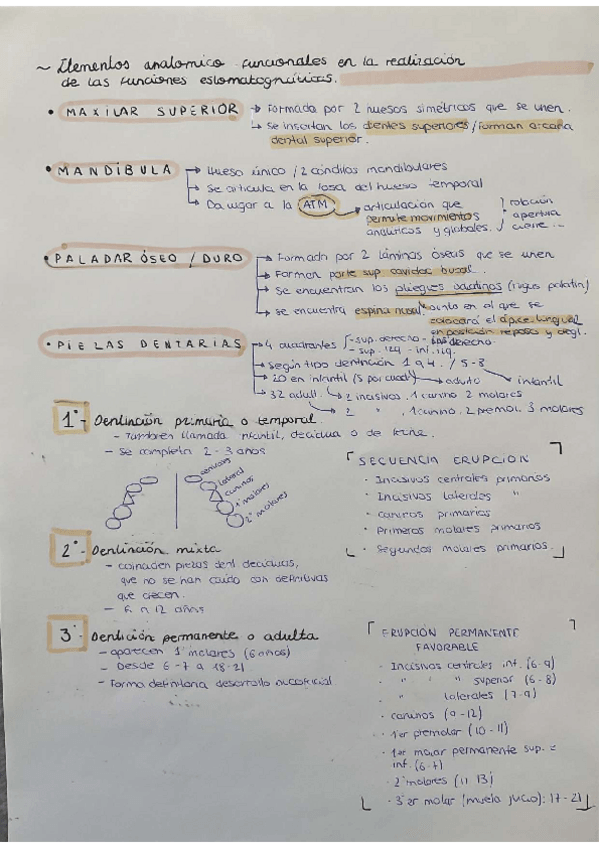 ~ Elementos anatomico funcionales en la realización
de las funciones estomatognáticas.
• MAXILAR SUPERIOR → Formada por 2 huesos simétricos que se unen.
↳ Se insertan los dientes superiores / forman arcada
dental superior.
• MANDÍBULA → Hueso único / 2 cóndilos mandibulares
→ Se articula en la fosa del hueso temporal
→ Da lugar a la ATM → articulación que
permite movimientos
analíticos y globales.
rotación
• apertura
cierre...
• PALADAR ÓSEO / DURO → Formado por 2 láminas óseas que se unen
→ Forman parte sup. cavidad bucal.
→ Se encuentran los pliegues palatinos (rugas palatin)
→ Se encuentra espina nasal: punto en el que se
colocará el ápice lingual
en posición reposo y degl.
• PIEZAS DENTARIAS → 4 cuadrantes - sup. derecho - inf. derecho
- sup. izq - inf. izq.
→ Según tipo dentición 1 a 4 / 5-8
→ 20 en infantil (5 por cuad) adulto infantil
→ 32 adult. 2 incisivos, 1 canino 2 molares
2 " , 1 canino, 2 premol, 3 molares
1º - Dentinción primaria o temporal
- También llamada infantil, decidua o de leche.
- Se completa 2 - 3 años
centrales
lateral
caninos
1º molares
2º molares
SECUENCIA ERUPCION
· Incisivos centrales primarios
· Incisivos laterales "
· caninos primarios
· Primeros molares primarios
· Segundos molares primarios.
2º - Dentinción mixta
- coinciden piezas dent. deciduas,
que no se han caído con definitivas
que crecen.
- 6 a 12 años
3º - Dentición permanente o adulta
- aparecen 1º molares (6 años)
- Desde 6 - 7 a 18-21
- Forma definitoria desarrollo
ERUPCIÓN PERMANENTE
FAVORABLE
· Incisivos centrales inf. (6-9)
· " " superior (6-8)
· " laterales (7-9)
· caninos (9-12)
· 1er premolar (10-11)
· 1er molar permanente sup. =
inf. (6-7)
· 2º molares (11 13)
· 3er molar (muela juicio): 17-21